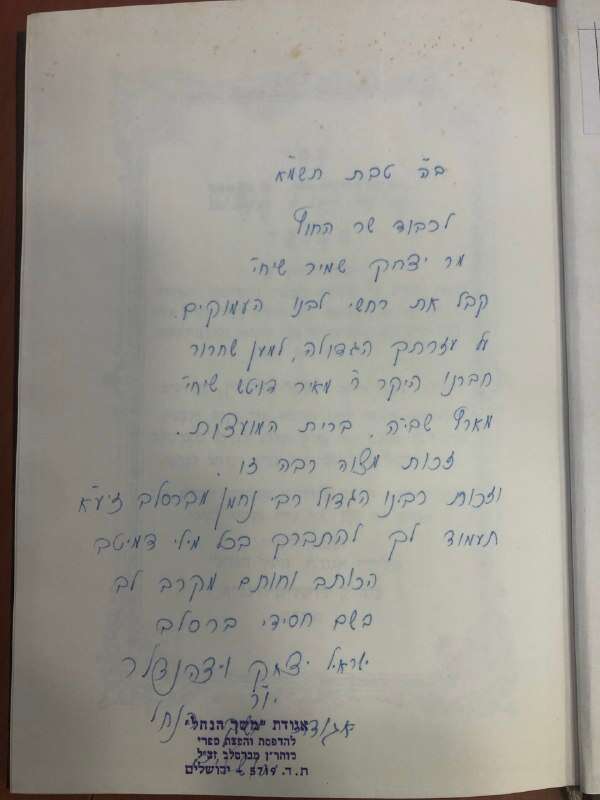 ב"ה טבת תשמ"א
לכבוד שר החוץ
מר יצחק שמיר שיחי'
קבל את רחשי לבנו העמוקים.
על עזרתך הגדולה, למען שחרור
חברנו היקר ר' מאיר דויטש שיחי'
מארץ שביה, ברית המועצות.
זכות מצוה רבה זו.
וזכות רבינו הגדול רבי נחמן מברסלב זיע"א
תעמוד לך להתברך בכל מילי דמיטב
הכותב וחותם מקרב לב
בשם חסידי ברסלב
ישראל יצחק
יו"ר
אגודת משך הנחל
אגודת "משך הנחל"
להדפסת והפצת ספרי
מוהר"ן מברסלב זצ"ל
ת.ד. 5719 - ירושלים